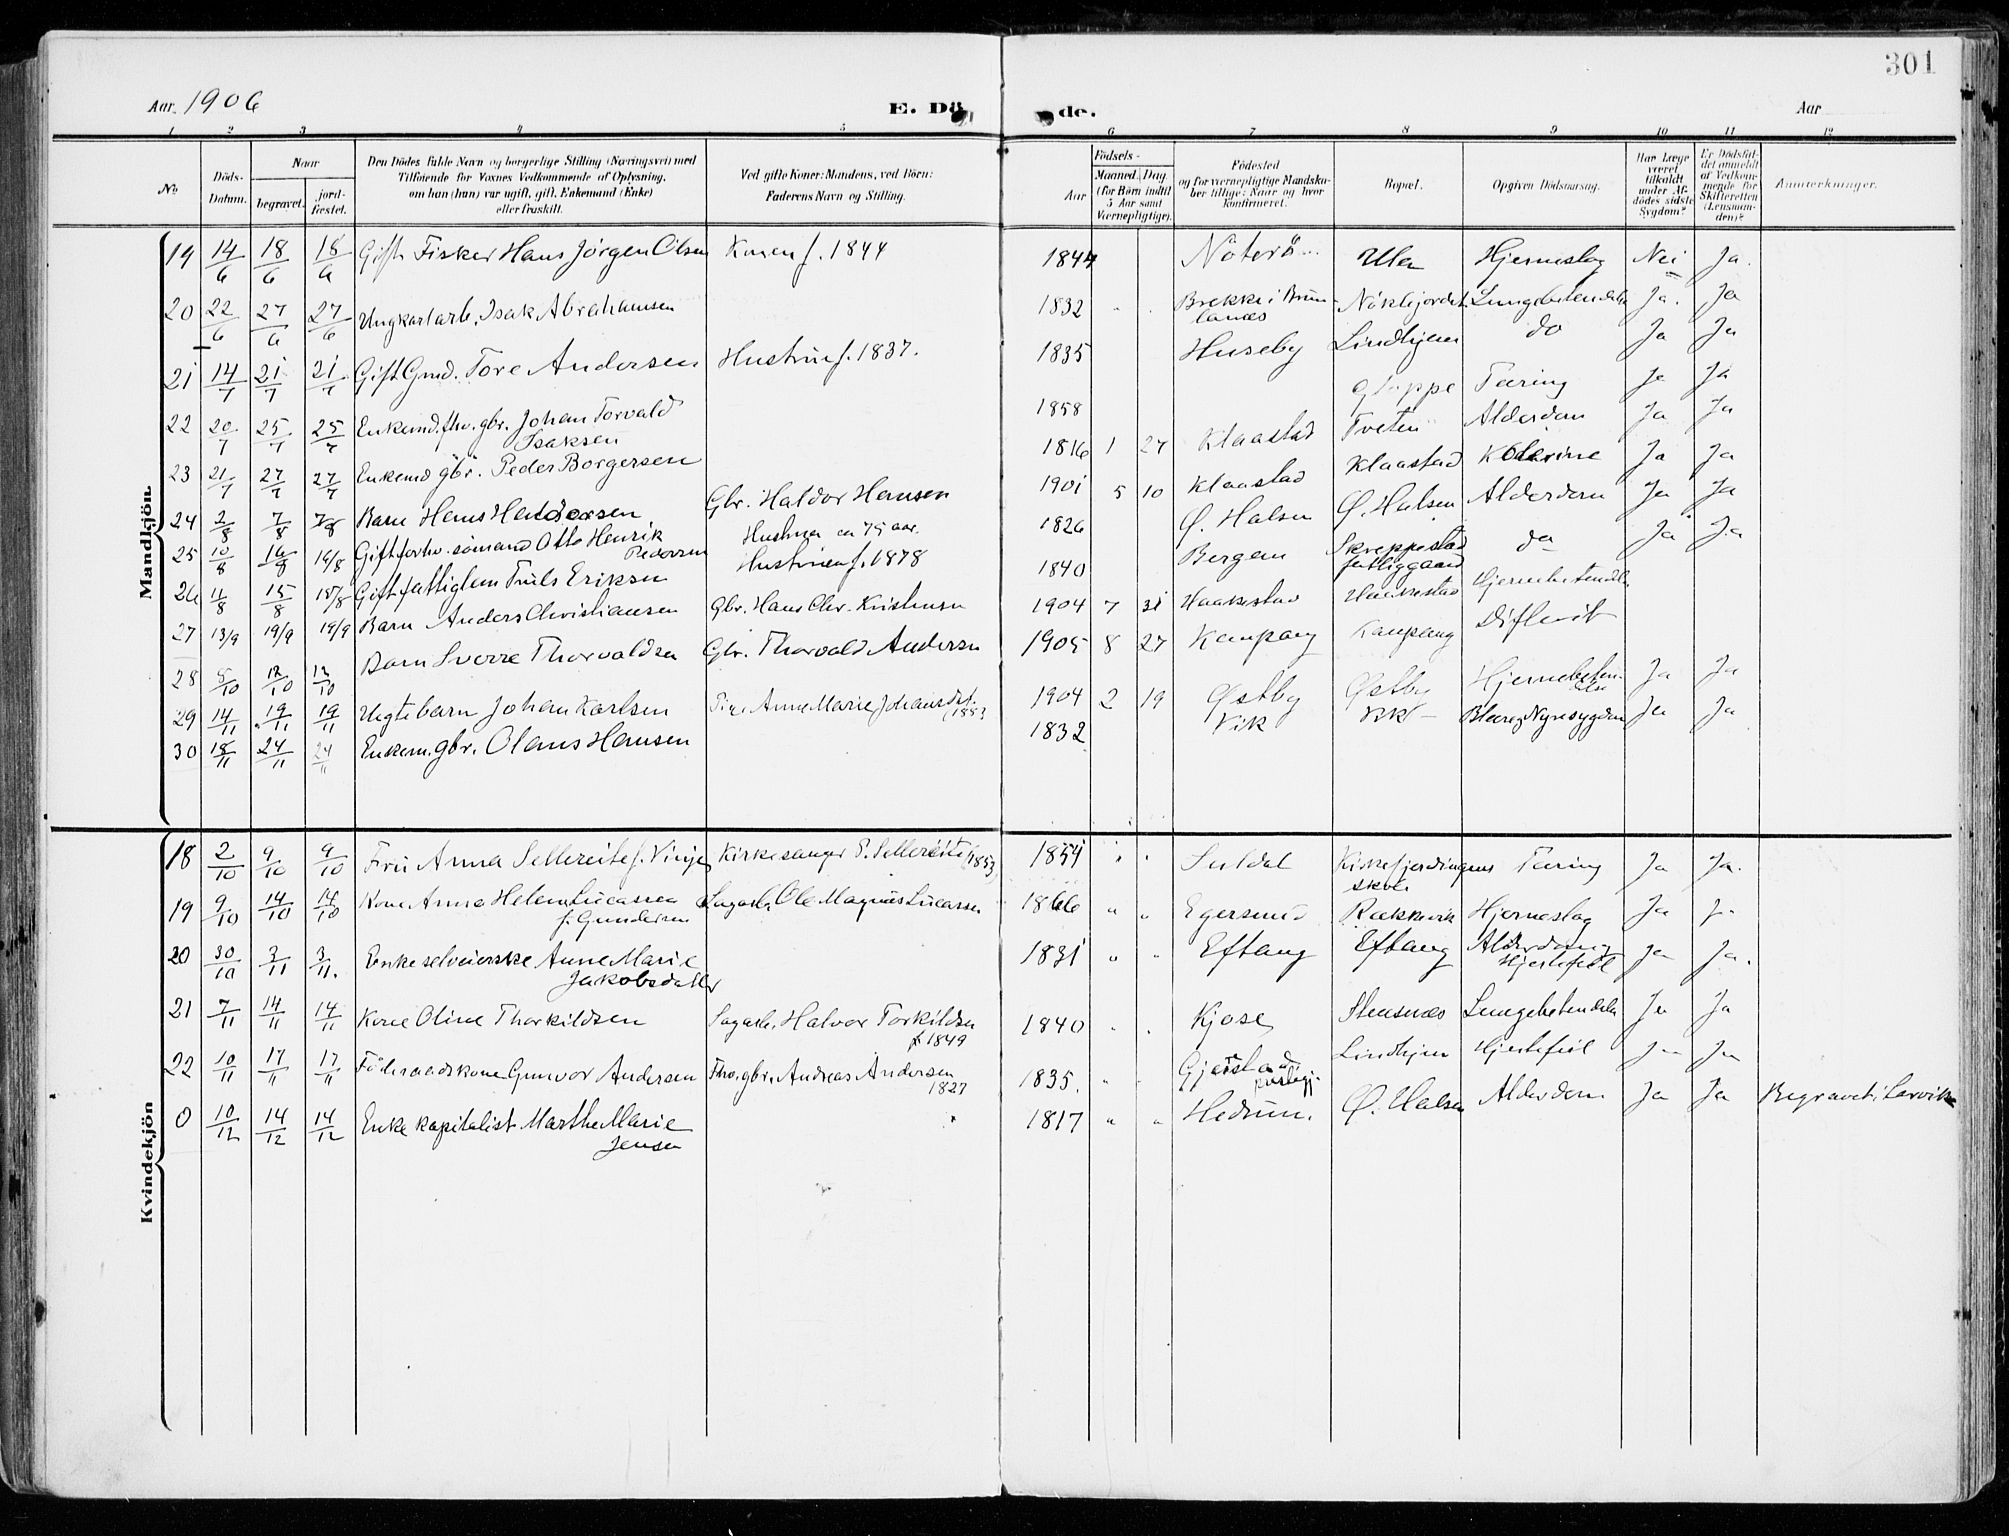 301
Aar 1906 E. Dö de. Aar
1 2 3 4 5 6 7 8 9 10 11 12
No. Döds-Datum. Naar begravet. jordfæstet. Den Dödes fulde Navn og borgerlige Stilling (Næringsvei) med Tilföiende for Voxnes Vedkommende af Oplysning, om han (hun) var ugift, gift, Enkemand (Enke) eller fraskilt. Ved gifte Koner: Mandens, ved Börn: Faderens Navn og Stilling. Födsels- Aar Maaned. Dag. (for Börn indtil 5 Aar samt Værnepligtige). Födested og for værnepligtige Mandskaber tillige: Naar og hvor konfirmeret. Bopæl. Opgiven Dödsaarsag. Har Læge været tilkaldt under Afdödes sidste Sygdom? Er Dödsfaldet anmeldt af Vedkommende for Skifteretten (Lensmanden)? Anmærkninger.
Mandkjön.
19 14/6 18/6 18/6 Gift Fisker Hans Jörgen Olsen Konen f. 1844 1844 Nöterö Ula Hjerneslag Nei Ja.
20 22/6 27/6 27/6 Ungkarl arb. Isak Abrahamsen 1832 " " Brekke i Brunlanæs Lungebetendelse Ja. Ja
21 14/7 21/7 21/7 Gift Gmd. Tore Andersen Hustru f. 1837. 1835 Huseby Lindhjem do Ja Ja
22 20/7 25/7 25/7 Enkemd. fhv. gbr. Johan Torvald Isaksen 1858 Gloppe Tæring Ja Ja
23 21/7 27/7 27/7 Enkemd gbr. Peder Borgersen 1816 1 27 Klaastad Tveten Alderdom Ja Ja
24 2/8 7/8 7/8 Barn Hans Haldorsen Gbr. Haldor Hansen 1901 5 10 Klaastad Klaastad Kolerine Ja Ja
25 10/8 16/8 16/8 Gift forhv. sömand Otto Henrik Pedersen Hustruen ca 75 aar. 1826 Ø. Halsen Ø. Halsen Alderdom Ja Ja
26 11/8 15/8 15/8 Gift fattiglem Truls Eriksen Hustruen f. 1878 1840 Bergen Skreppestad fattiggaard do Ja Ja
27 13/9 19/9 19/9 Barn Anders Christiansen Gbr. Hans Chr. Kristensen 1904 7 31 Haakestad Haakestad Hjernebetendelse
28 5/10 12/10 12/10 Barn Sverre Thorvaldsen Gbr. Thorvald Andersen 1905 8 27 Kaupang Kaupang Difterit
29 14/11 19/11 19/11 Uegte barn Johan Karlsen Pige Anne Marie Johansdat. (1883 1904 2 19 Østby Østby Hjernebetendelse Ja Ja
30 18/11 24/11 24/11 Enkem. gbr. Olaus Hansen 1832 Vik Vik Blære og Nyresygdom Ja Ja
Kvindekjön
18 2/10 9/10 9/10 Fru Anna Sellereite f. Vinje Kirkesanger P. Sellereite (1853) 1854 " " Suldal Kirkefjerdingens skole Tæring Ja Ja.
19 9/10 14/10 14/10 Kone Anne Helene Lucassen f. Gundersen Sagarb. Ole Magnus Lucassen 1866 " " Egersund Rækkevik Hjerneslag Ja
20 30/10 3/11 3/11. Enke selveierske Anne Marie Jakobsdatter 1831 " " Eftang Eftang Alderdom og Hjertefeil Ja Ja.
21 7/11 14/11 14/11 Kone Oline Thorkildsen Sagarb. Halvor Torkildsen f. 1849 1840 " " Kjose Stensnæs Lungebetendelse Ja Ja
22 10/11 17/11 17/11 Föderaadskone Gunvor Andersen Fhv. gbr. Andreas Andersen 1827 1835. " " Gjerstad prestegj. Lindhjem Hjertefeil Ja Ja
0 10/12 14/12 14/12 Enke kapitalist Marthe Marie Jensen 1817 " " Hedrum. Ø. Halsen Alderdom Ja Ja Begravet i Larvik